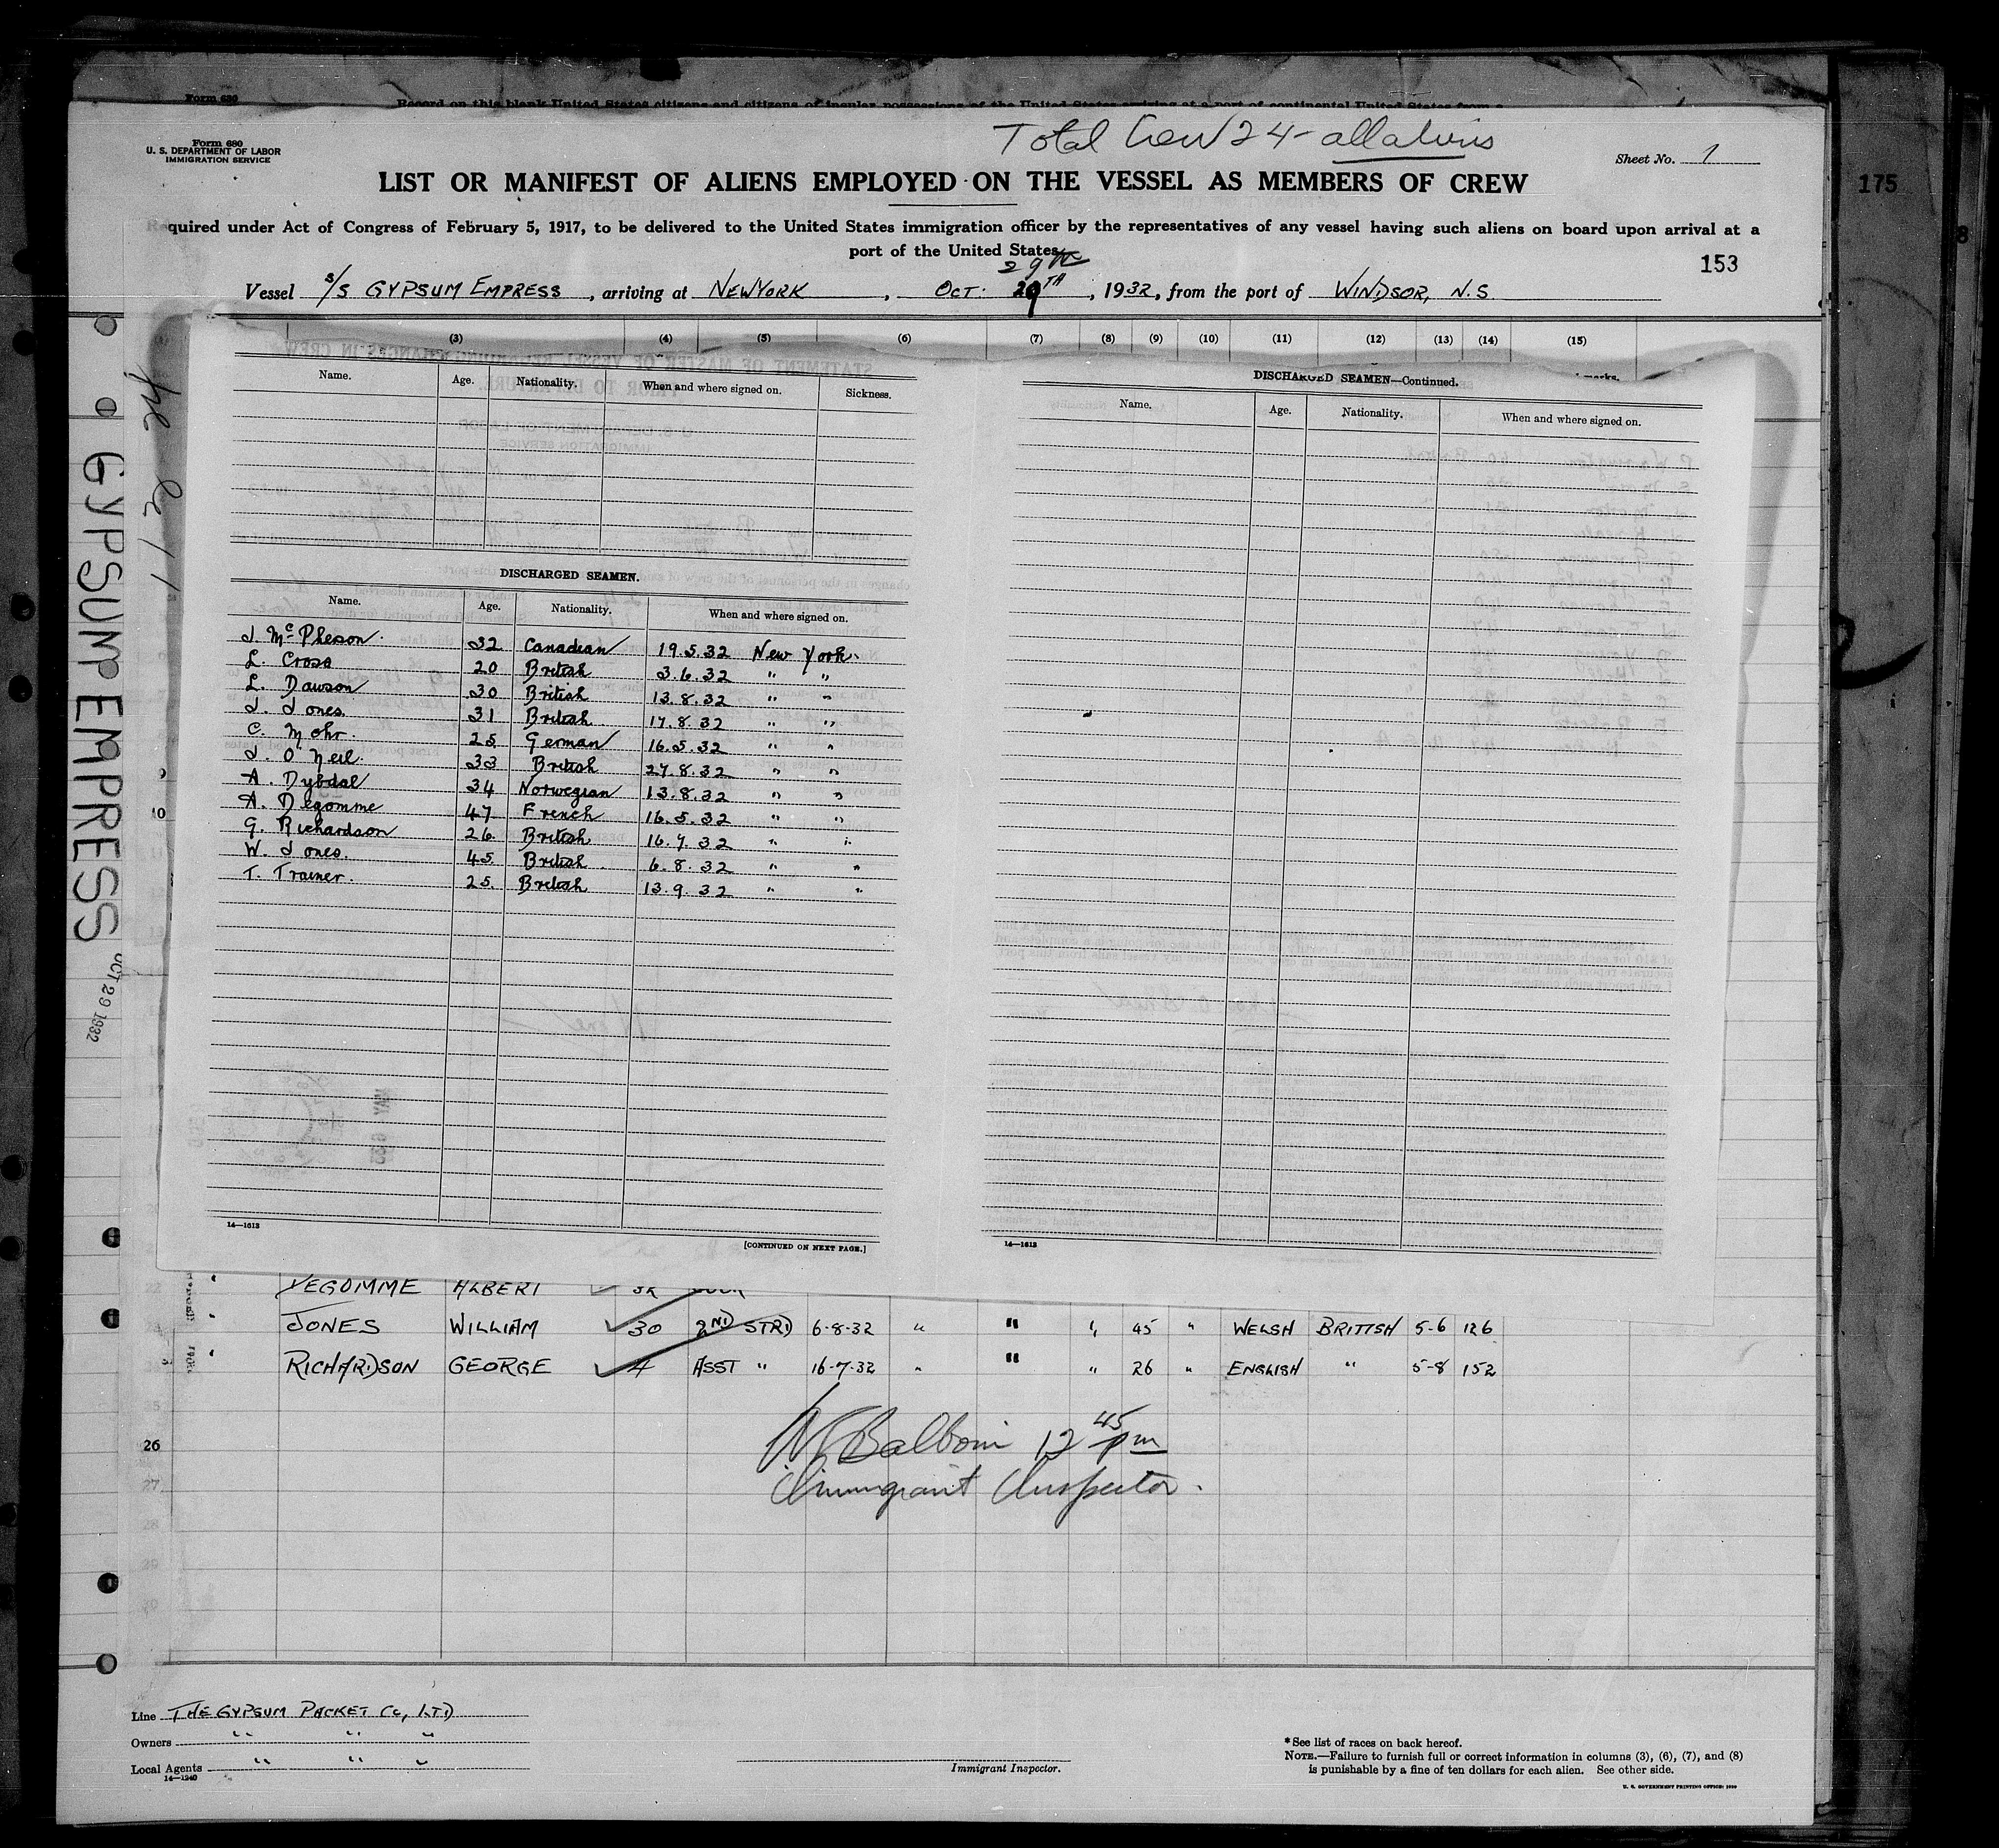 Form 630
Record on this blank United States citizens and citizens of insular possessions of the United States arriving at a port of continental United States from a
Total Crew 24 - all aliens
Form 680
U. S. DEPARTMENT OF LABOR
IMMIGRATION SERVICE
Sheet No. 1
LIST OR MANIFEST OF ALIENS EMPLOYED ON THE VESSEL AS MEMBERS OF CREW
175
quired under Act of Congress of February 5, 1917, to be delivered to the United States immigration officer by the representatives of any vessel having such aliens on board upon arrival at a
port of the United States
153
29th
Vessel S/S GYPSUM EMPRESS, arriving at NEW YORK, OCT. 29TH, 1932, from the port of WINDSOR, N.S.
(3) (4) (5) (6) (7) (8) (9) (10) (11) (12) (13) (14) (15)
Name. Age. Nationality. When and where signed on. Sickness.
DISCHARGED SEAMEN.
Name. Age. Nationality. When and where signed on.
J. McPherson. 32 Canadian 19.5.32 New York.
L. Cross 20 British 3.6.32 " "
L. Dawson 30 British 13.8.32 " "
J. Jones. 31 British 17.8.32 " "
C. Mohr. 25 German 16.5.32 " "
J. O'Neil. 33 British 27.8.32 " "
A. Dybdal 34 Norwegian 13.8.32 " "
A. Degomme 47 French 16.5.32 " "
G. Richardson 26 British 16.7.32 " "
W. Jones. 45 British 6.8.32 " "
T. Trainer. 25 British 13.9.32 " "
14—1613
[CONTINUED ON NEXT PAGE.]
DISCHARGED SEAMEN—Continued.
Name. Age. Nationality. When and where signed on.
14—1613
GYPSUM EMPRESS
OCT 29 1932
DEGOMME ALBERT
JONES WILLIAM 30 2ND STRD 6-8-32 " " " 45 " WELSH BRITISH 5-6 126
RICHARDSON GEORGE 4 ASST " 16-7-32 " " " 26 " ENGLISH " 5-8 152
12 45 pm
Immigrant Inspector.
26
27
28
29
30
Line THE GYPSUM PACKET Co, LTD
Owners " " "
Local Agents " " "
14—1240
Immigrant Inspector.
* See list of races on back hereof.
NOTE.—Failure to furnish full or correct information in columns (3), (6), (7), and (8)
is punishable by a fine of ten dollars for each alien. See other side.
U. S. GOVERNMENT PRINTING OFFICE: 1930